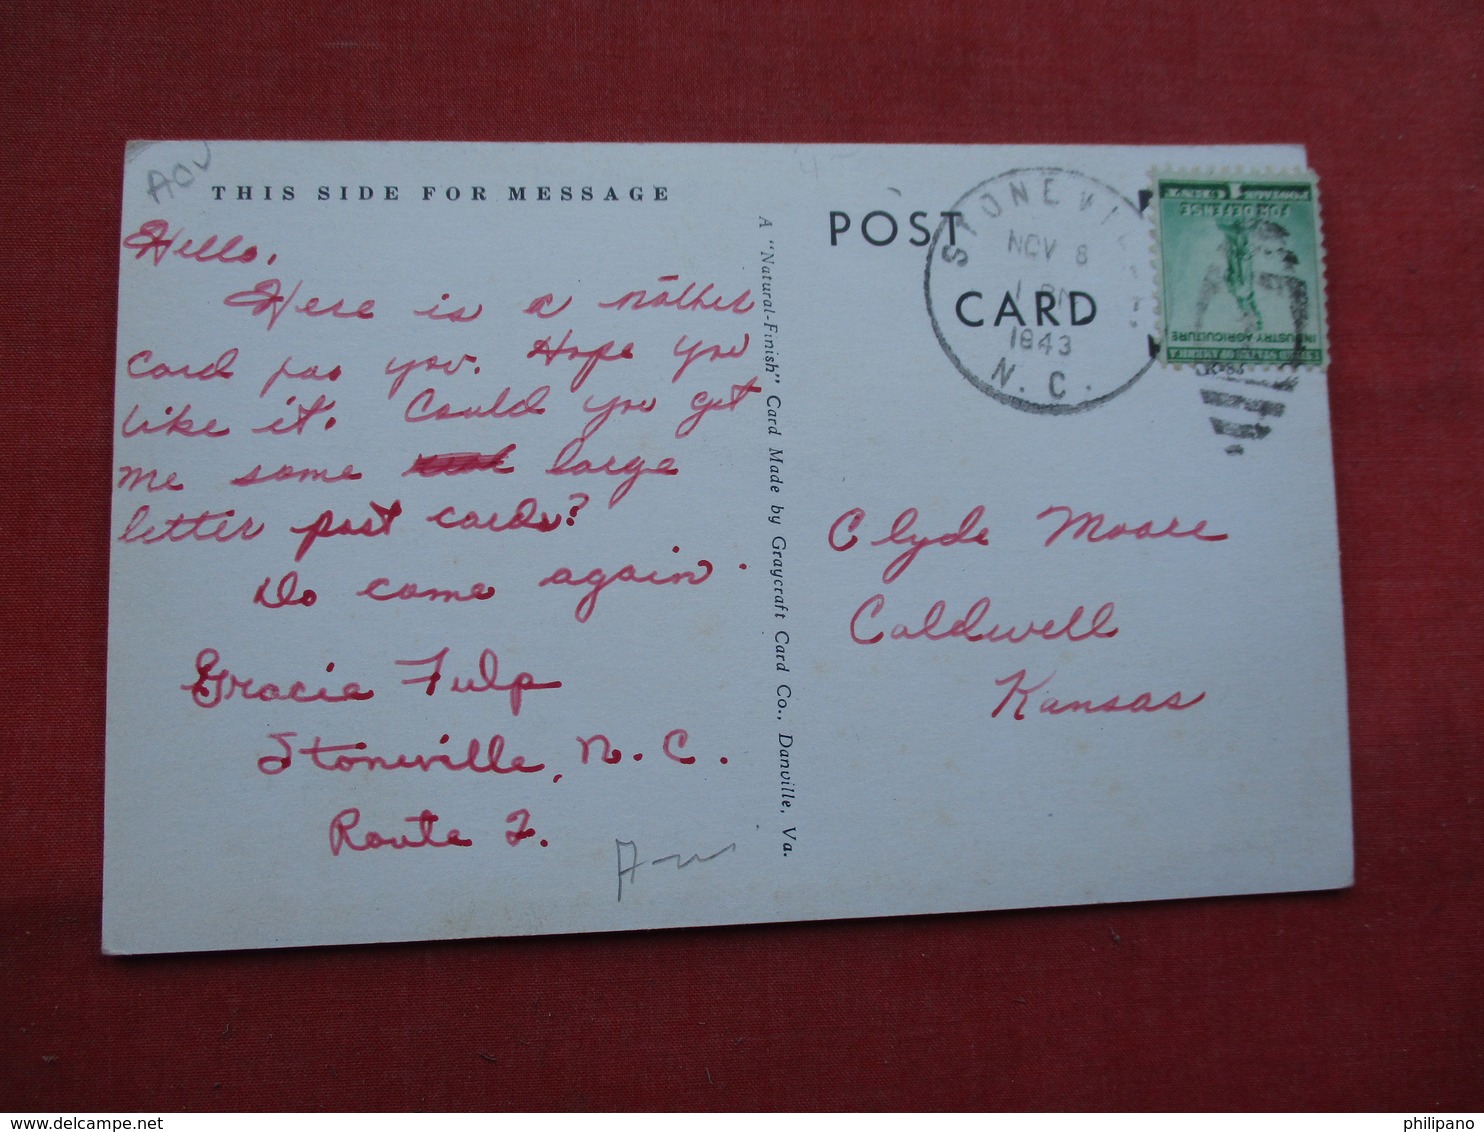 THIS SIDE FOR MESSAGE
Hello,
Here is a nother
card for you. Hope you
like it. Could you get
me some large
letter post cards?
Do come again.
Gracie Fulp
Stoneville, N. C.
Route 2.
A "Natural-Finish" Card Made by Graycraft Card Co., Danville, Va.
POST
CARD
STONEVILLE
NOV 8
1 PM
1943
N. C.
1 CENT 1
FOR DEFENSE
INDUSTRY AGRICULTURE
UNITED STATES OF AMERICA
Clyde Moore
Caldwell
Kansas
delcampe.net
philipano